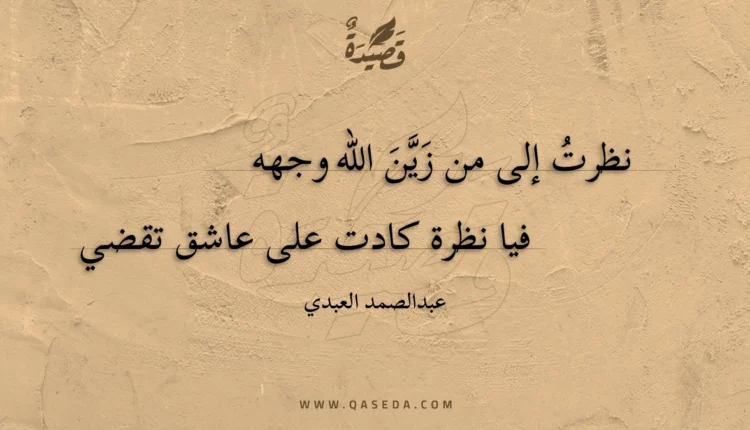 قَصِيْدَةٌ
نظرتُ إلى من زَيَّنَ الله وجهه
فيا نظرة كادت على عاشق تقضي
عبدالصمد العبدي
WWW.QASEDA.COM